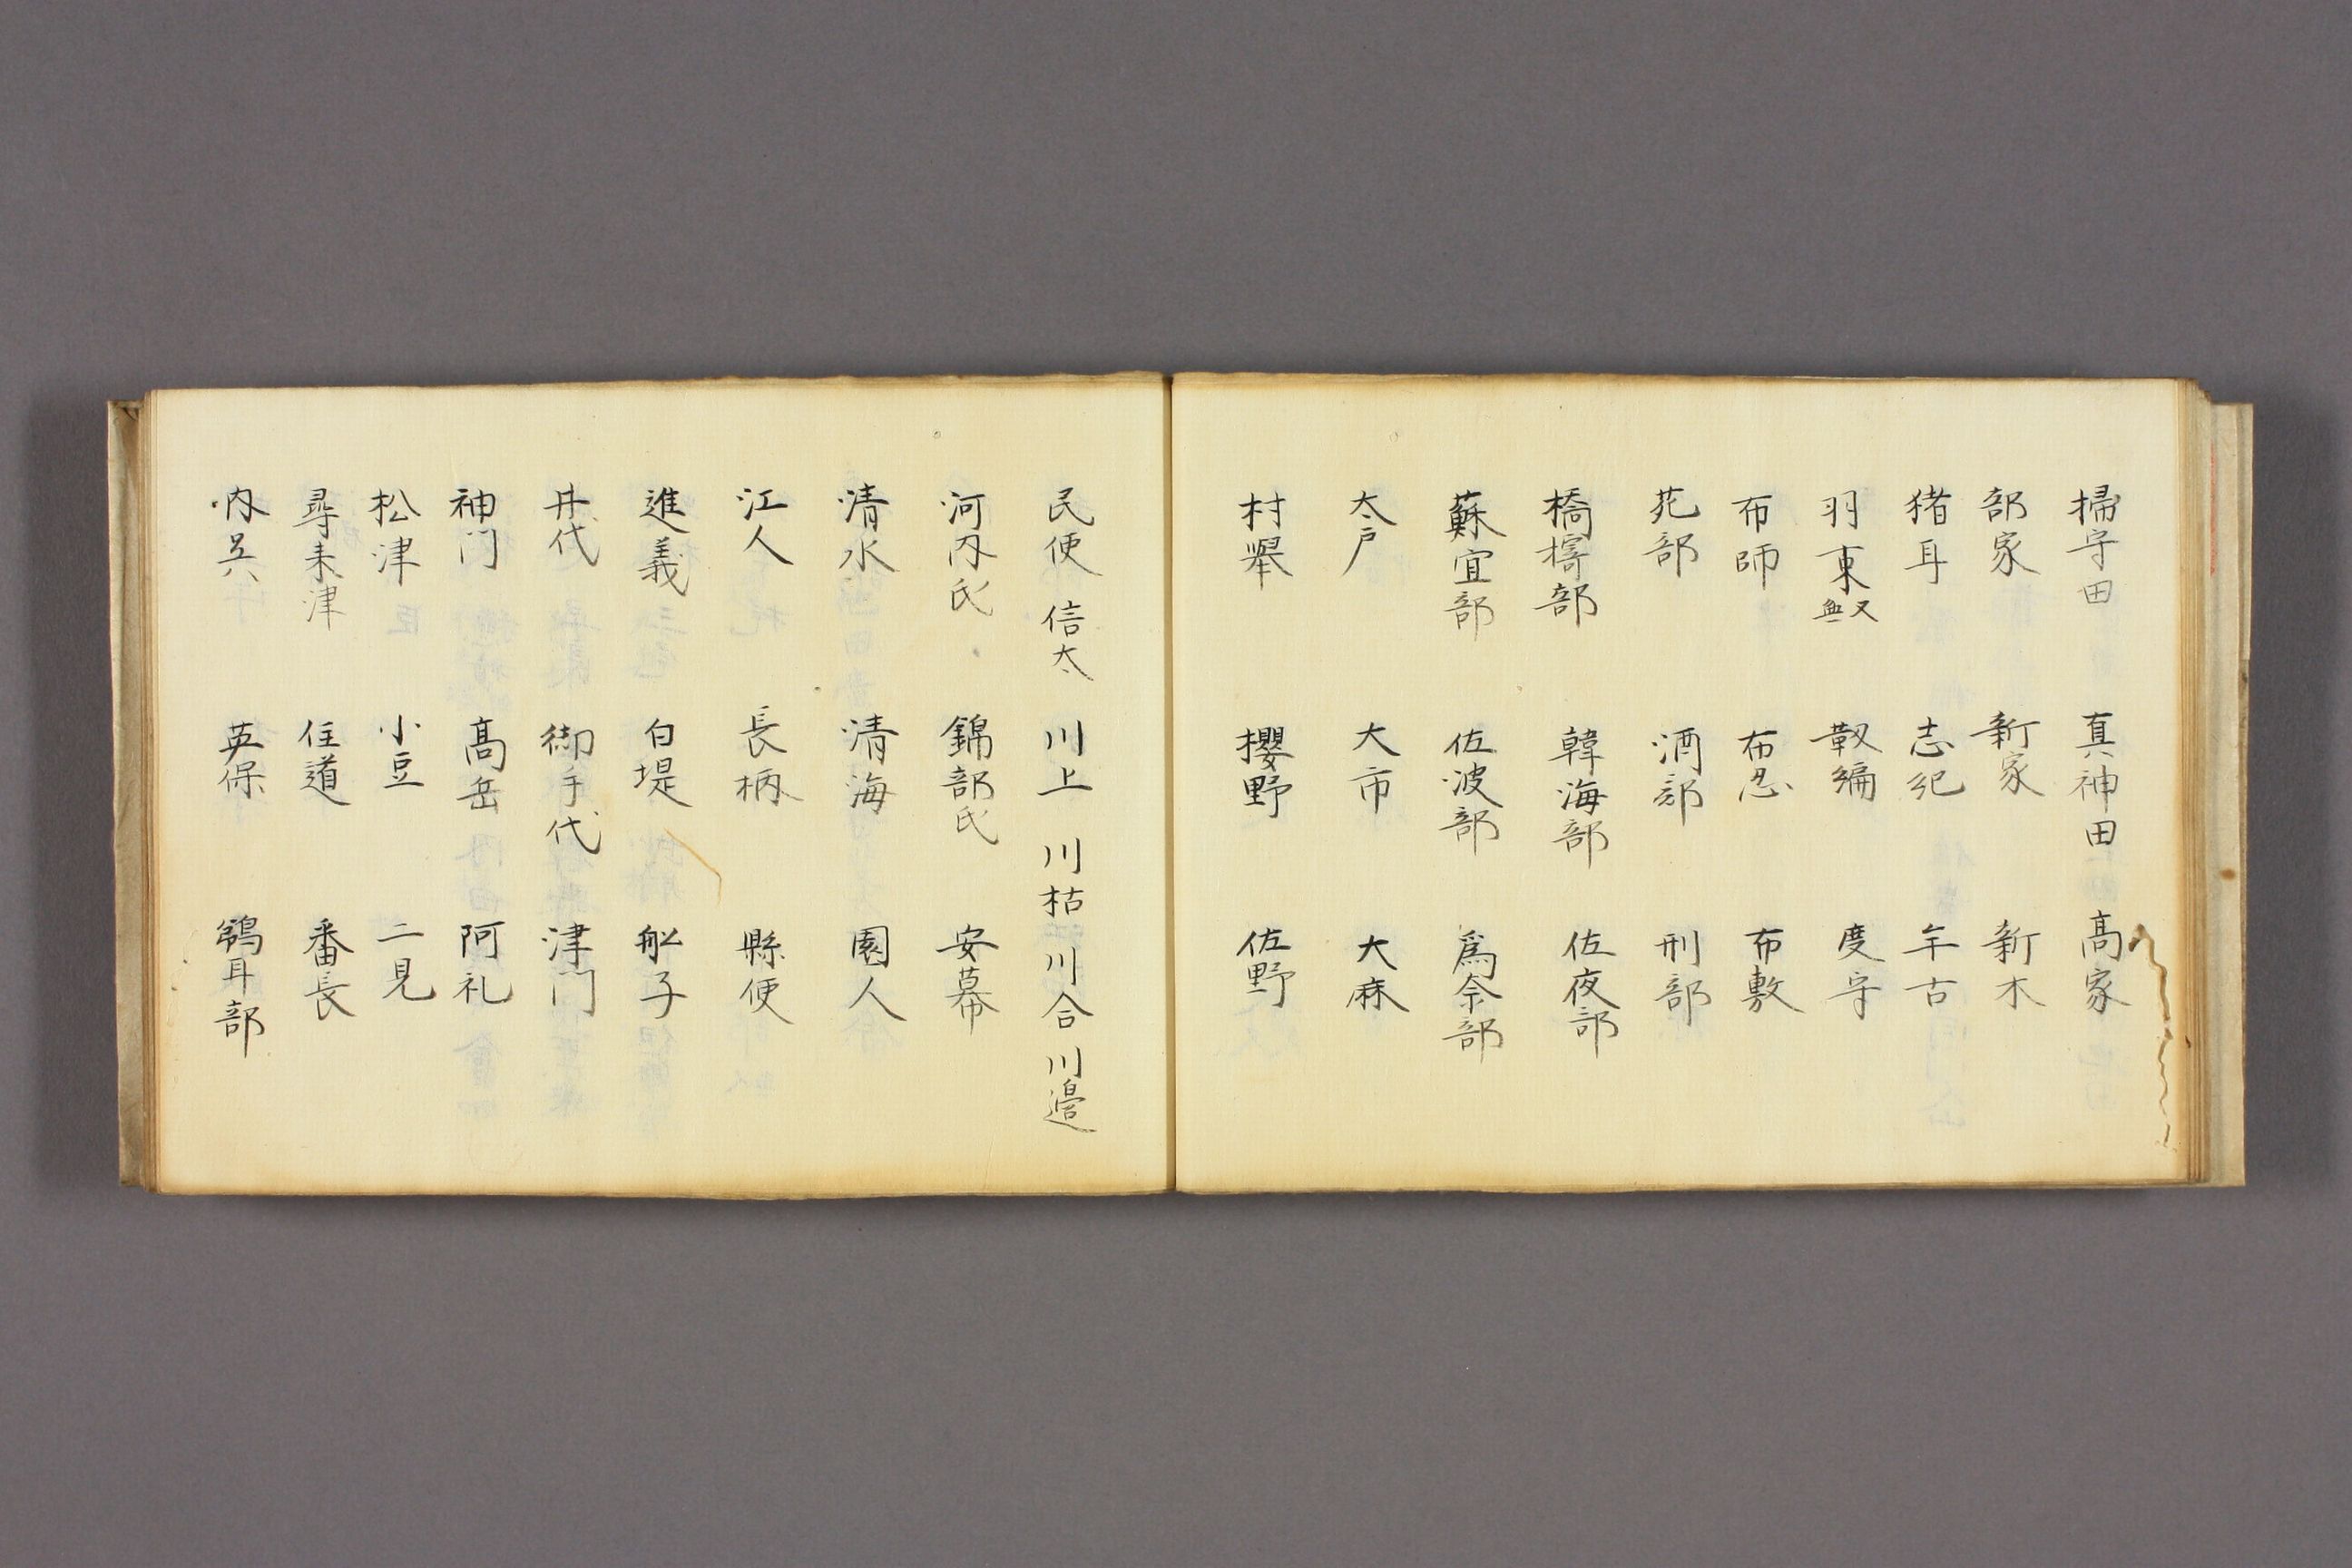 掃守田 真神田 髙家
部家 新家 新木
猪耳 志紀 年古
羽束 無又 靱編 度守
布師 布忍 布敷
苑部 酒部 刑部
橋檮部 韓海部 佐夜部
蘇宜部 佐波部 為奈部
太戸 大市 大麻
村舉 櫻野 佐野
民使 信太 川上 川枯 川合 川邉
河内氏 錦部氏 安幕
清水 清海 園人
江人 長柄 縣使
進義 白堤 舩子
井代 御手代 津門
神門 髙岳 阿礼
松津 小豆 二見
尋来津 住道 番長
内呉 英保 耳部